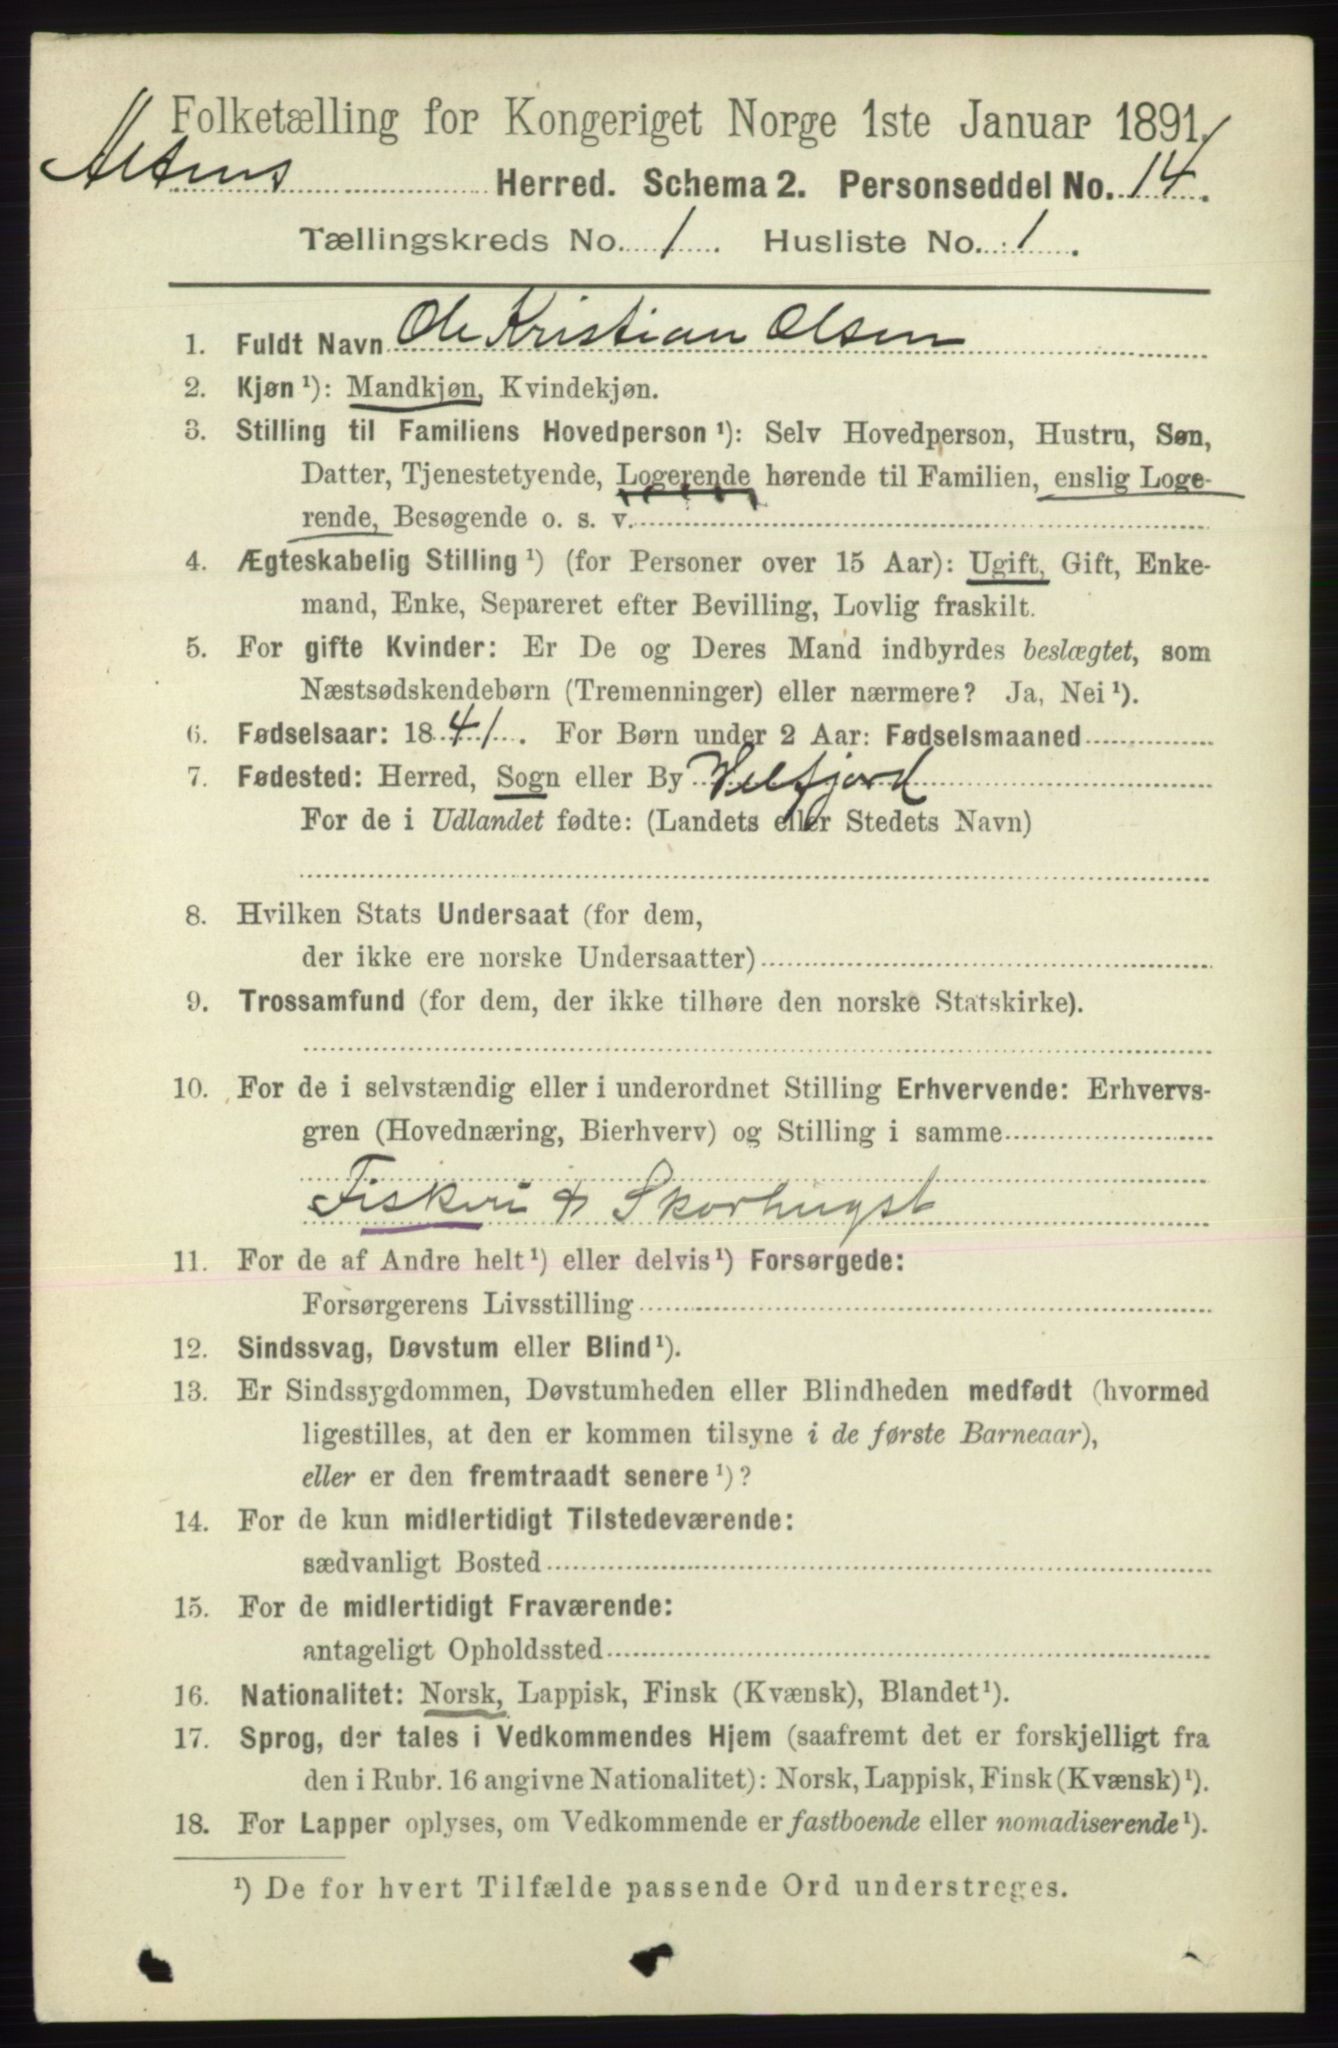 Folketælling for Kongeriget Norge 1ste Januar 1891.
Herred. Schema 2. Personseddel No. 14.
Tællingskreds No. 1. Husliste No. 1.
1. Fuldt Navn Ole Kristian Olsen
2. Kjøn ¹): Mandkjøn, Kvindekjøn.
3. Stilling til Familiens Hovedperson ¹): Selv Hovedperson, Hustru, Søn,
Datter, Tjenestetyende, Logerende hørende til Familien, enslig Loge-
rende, Besøgende o. s. v.
4. Ægteskabelig Stilling ¹) (for Personer over 15 Aar): Ugift, Gift, Enke-
mand, Enke, Separeret efter Bevilling, Lovlig fraskilt.
5. For gifte Kvinder: Er De og Deres Mand indbyrdes beslægtet, som
Næstsødskendebørn (Tremenninger) eller nærmere? Ja, Nei ¹).
6. Fødselsaar: 1841. For Børn under 2 Aar: Fødselsmaaned
7. Fødested: Herred, Sogn eller By Velfjord
For de i Udlandet fødte: (Landets eller Stedets Navn)
8. Hvilken Stats Undersaat (for dem,
der ikke ere norske Undersaatter)
9. Trossamfund (for dem, der ikke tilhøre den norske Statskirke).
10. For de i selvstændig eller i underordnet Stilling Erhvervende: Erhvervs-
gren (Hovednæring, Bierhverv) og Stilling i samme
Fiskeri &
11. For de af Andre helt ¹) eller delvis ¹) Forsørgede:
Forsørgerens Livsstilling
12. Sindssvag, Døvstum eller Blind ¹).
13. Er Sindssygdommen, Døvstumheden eller Blindheden medfødt (hvormed
ligestilles, at den er kommen tilsyne i de første Barneaar),
eller er den fremtraadt senere ¹)?
14. For de kun midlertidigt Tilstedeværende:
sædvanligt Bosted
15. For de midlertidigt Fraværende:
antageligt Opholdssted
16. Nationalitet: Norsk, Lappisk, Finsk (Kvænsk), Blandet ¹).
17. Sprog, der tales i Vedkommendes Hjem (saafremt det er forskjelligt fra
den i Rubr. 16 angivne Nationalitet): Norsk, Lappisk, Finsk (Kvænsk) ¹).
18. For Lapper oplyses, om Vedkommende er fastboende eller nomadiserende ¹).
¹) De for hvert Tilfælde passende Ord understreges.